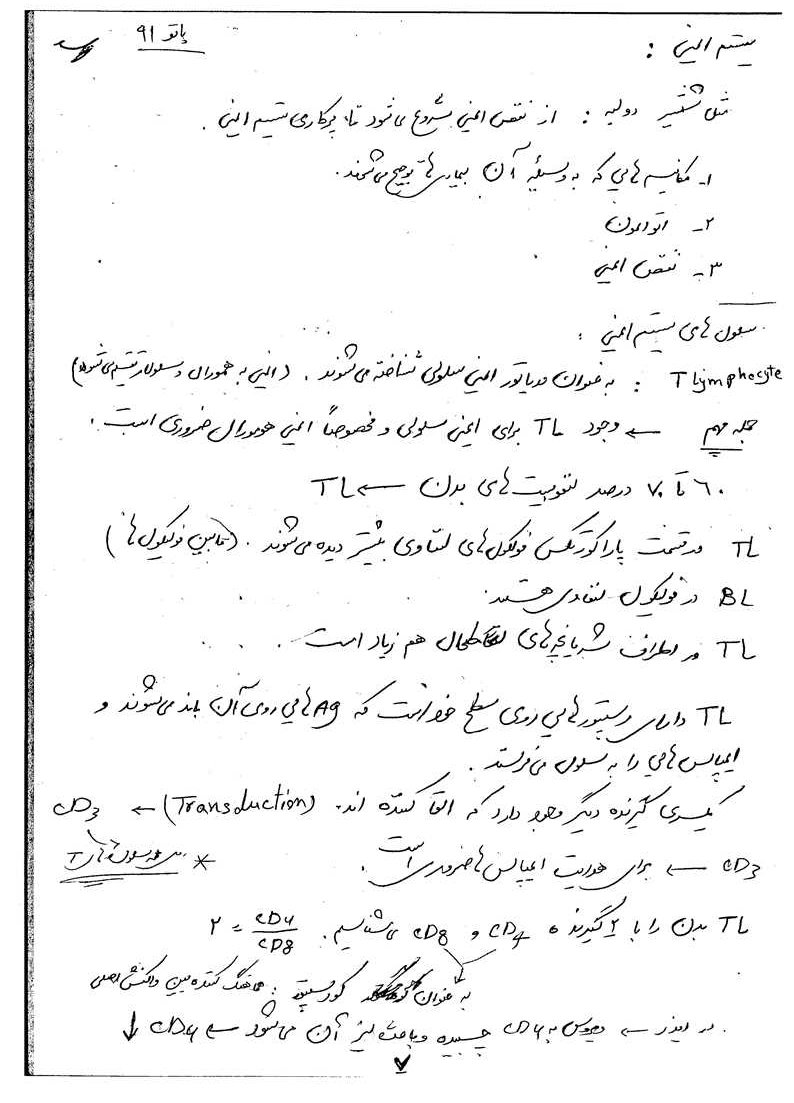 پاتو ۹۱
سیستم ایمنی :
مثل شمشیر دولبه : از نقص ایمنی شروع می شود تا پرکاری سیستم ایمنی .
۱- مکانیسم هایی که به وسیله آن بیماری ها توجیح می شوند.
۲- اتوایمون
۳- نقص ایمنی
سلول های سیستم ایمنی :
T lymphocyte : به عنوان مدیاتور ایمنی سلولی شناخته می شوند . (ایمنی به همورال و سلولار تقسیم می شود)
جمله مهم ← وجود TL برای ایمنی سلولی و مخصوصاً ایمنی هومورال ضروری است .
۶۰ تا ۷۰ درصد لنفوسیت های بدن ← TL
TL در قسمت پاراکورتکس فولکول های لنفاوی بیشتر دیده می شوند . (مابین فولکول ها)
BL در فولکول لنفاوی هستند.
TL در اطراف شریانچه های طحال هم زیاد است .
TL دارای رسپتورهایی روی سطح خود است که Ag هایی روی آن باند می شوند و
ایمپالس هایی را به سلول می فرستد .
یکسری گیرنده دیگر وجود دارد که القا کننده اند. (Transduction) ← CD3
CD3 ← برای هدایت ایمپالس ها ضروری است .
* سلول های T
TL بدن را با ۲ گیرنده CD4 و CD8 می شناسیم . CD4/CD8 = ۲
به عنوان کورسپتور : هماهنگ کننده بین واکنش اصلی
در ایدز ← ویروس به CD4 چسبیده و باعث لیز آن می شود ← CD4 ↓
۷